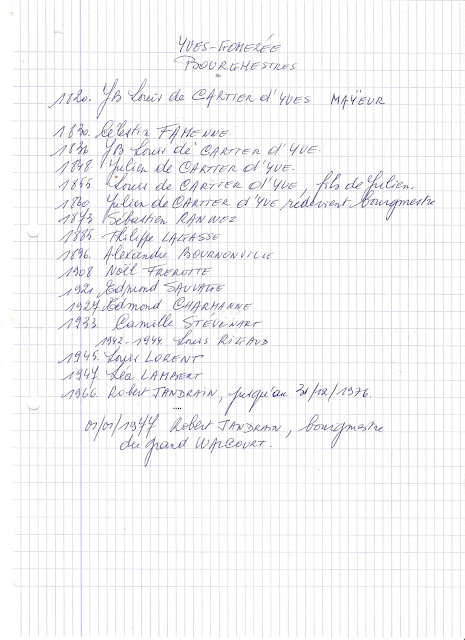 YVES-GOMERÉE
BOURGMESTRES
1820. JB Louis de CARTIER d'YVES MAYEUR
1830. Célestin FAMENNE
1836 JB Louis de CARTIER d'YVE.
1848. Julien de CARTIER d'YVE.
1855 Louis de CARTIER d'YVE, fils de Julien.
1860 Julien de CARTIER d'YVE redevient bourgmestre
1873 Sébastien RANWEZ
1885. Philippe LAGASSE
1896. Alexandre BOURNONVILLE
1908 Noël FREROTTE
1921 Edmond SAUVAGE
1927 Edmond CHARMANNE
1933 Camille STÉVENART
1942-1944 Louis RIGAUD
1945. Louis LORENT
1947. Léa LAMBERT
1966. Robert JANDRAIN, jusqu'au 31/12/1976.
01/01/1977 Robert JANDRAIN, bourgmestre
du grand WALCOURT.